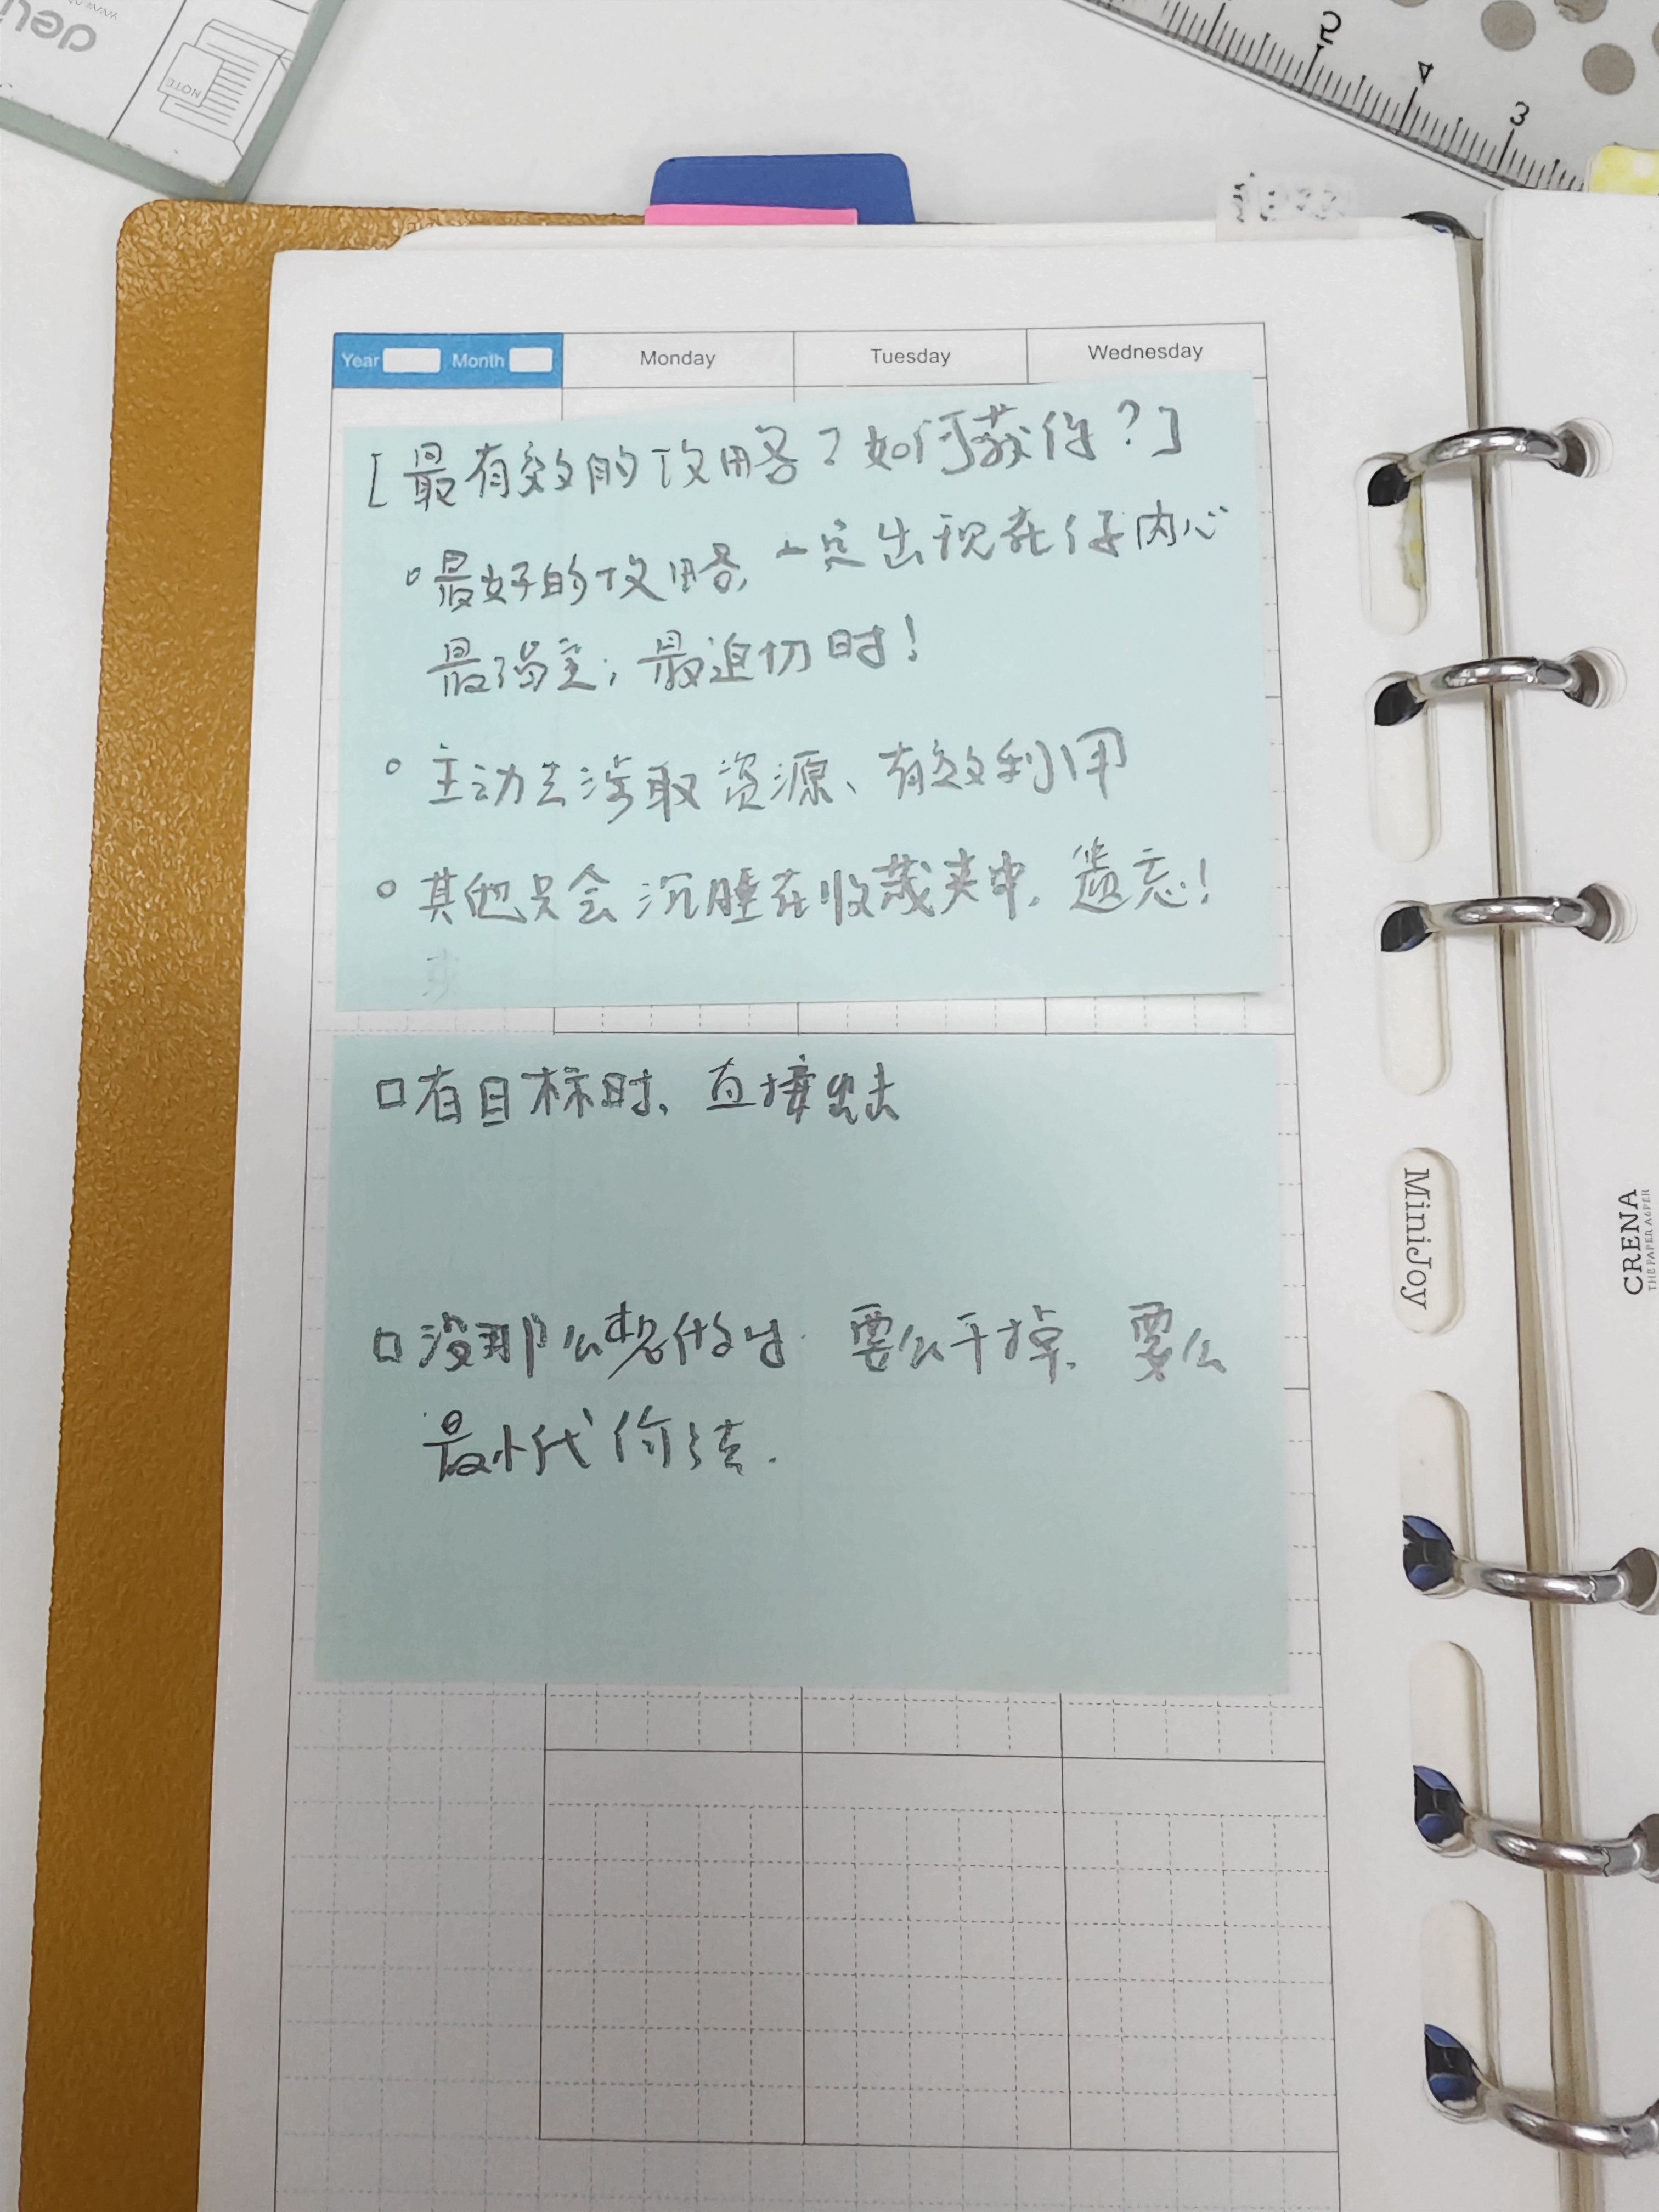 deli
NOTE
5
4
3
Year Month Monday Tuesday Wednesday
[最有效的攻略？如何获得？]
最好的攻略,一定出现在你内心
最渴望,最迫切时!
主动去涉取资源、有效利用
其他只会沉睡在收藏夹中,遗忘!
有目标时、直接出击
没那么想做时 要么干掉、要么
最小代价
MiniJoy
CRENA
THE PAPER A6PER